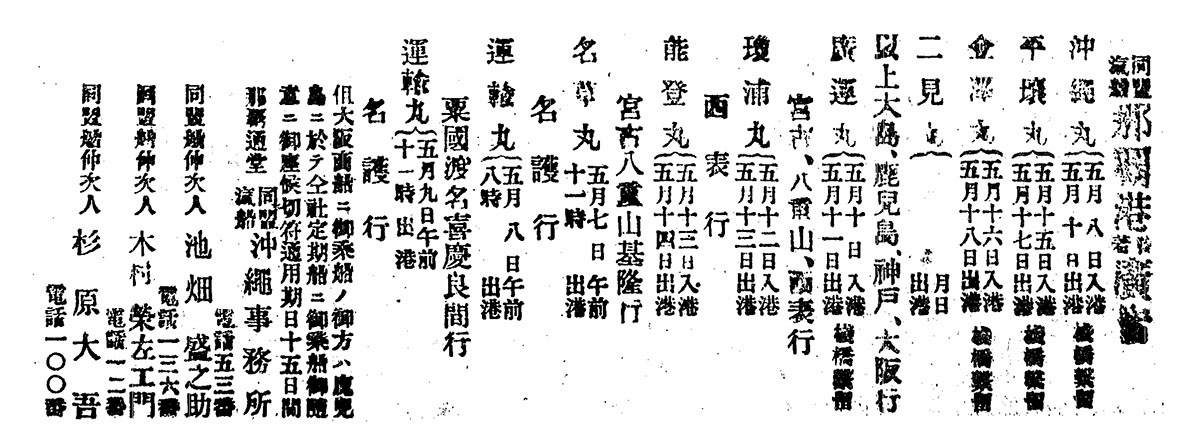 同盟汽船那覇港發着廣告
沖繩丸 五月八日入港 五月十日出港 棧橋繫留
平壤丸 五月十五日入港 五月十七日出港 棧橋繫留
金澤丸 五月十六日入港 五月十八日出港 棧橋繫留
二見丸 月日 出港
以上大島、鹿兒島、神戶、大阪行
廣運丸 五月十日入港 五月十一日出港 棧橋繫留
宮古、八重山、西表行
瓊浦丸 五月十二日入港 五月十三日出港
西表行
能登丸 五月十三日入港 五月十四日出港
宮古八重山基隆行
名草丸 五月七日午前十一時 出港
名護行
運輸丸 五月八日午前八時 出港
粟國渡名喜慶良間行
運輸丸 五月九日午前十一時 出港
名護行
但大阪商船ニ御乘船ノ御方ハ鹿兒
島ニ於テ仝社定期船ニ御乘船御隨
意ニ御座候切符通用期日十五日間
那覇通堂 同盟汽船 沖繩事務所
電話五三番
同盟船仲次人 池畑盛之助
電話一三六番
同盟船仲次人 木村榮左工門
電話一二番
同盟船仲次人 杉原大吾
電話一〇〇番